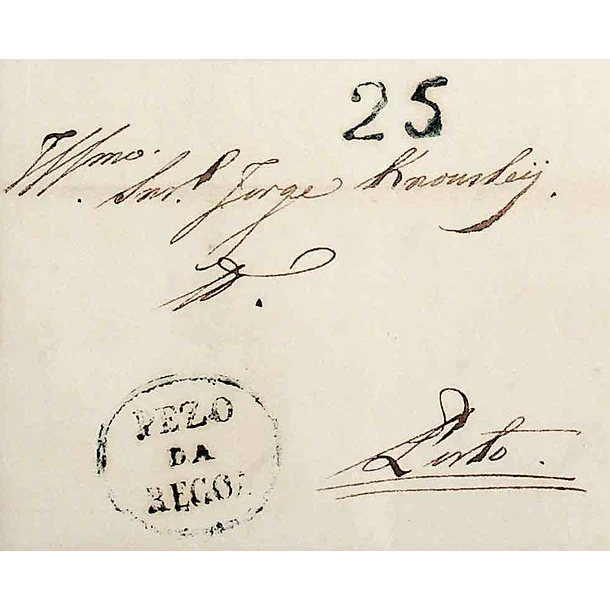 25
Illmo. Snr. Jorge Knowsley.
PEZO
DA
REGOA
Porto.